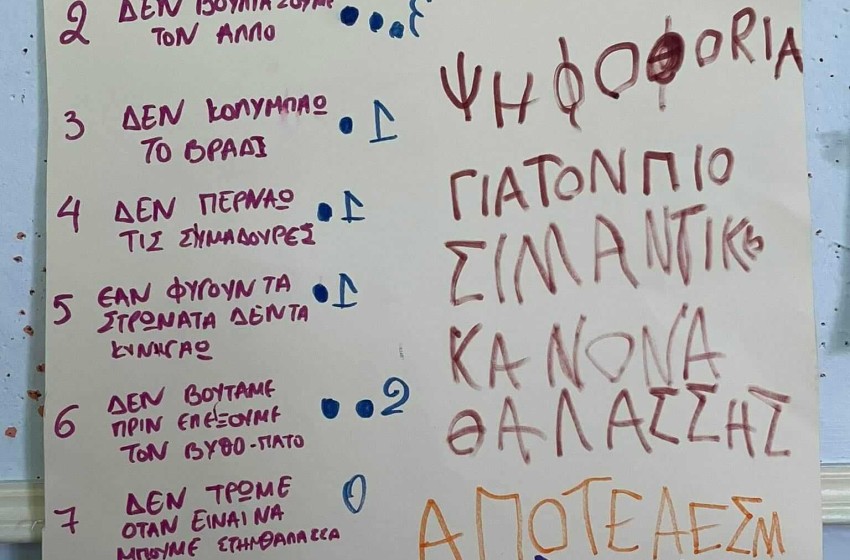 2 ΔΕΝ ΒΟΥΛΙΑΖΟΥΜΕ
ΤΟΝ ΑΛΛΟ
3 ΔΕΝ ΚΟΛΥΜΠΑΩ 1
ΤΟ ΒΡΑΔΙ
4 ΔΕΝ ΠΕΡΝΑΩ 1
ΤΙΣ ΣΥΜΑΔΟΥΡΕΣ
5 ΕΑΝ ΦΥΓΟΥΝ ΤΑ 1
ΣΤΡΩΝΑΤΑ ΔΕΝ ΤΑ
ΚΥΝΗΓΑΩ
6 ΔΕΝ ΒΟΥΤΑΜΕ 2
ΠΡΙΝ ΕΛΕΞΟΥΜΕ
ΤΟΝ ΒΥΘΟ-ΠΑΤΟ
7 ΔΕΝ ΤΡΩΜΕ 0
ΟΤΑΝ ΕΙΝΑΙ ΝΑ
ΜΠΟΥΜΕ ΣΤΗΝΘΑΛΑΣΣΑ
ΨΗΦΟΦΟRΙΑ
ΓΙΑΤΟΝ ΠΙΟ
ΣΙΜΑΝΤΙΚΟ
ΚΑΝΟΝΑ
ΘΑΛΑΣΣΗΣ
ΑΠΟΤΕΛΕΣΜ